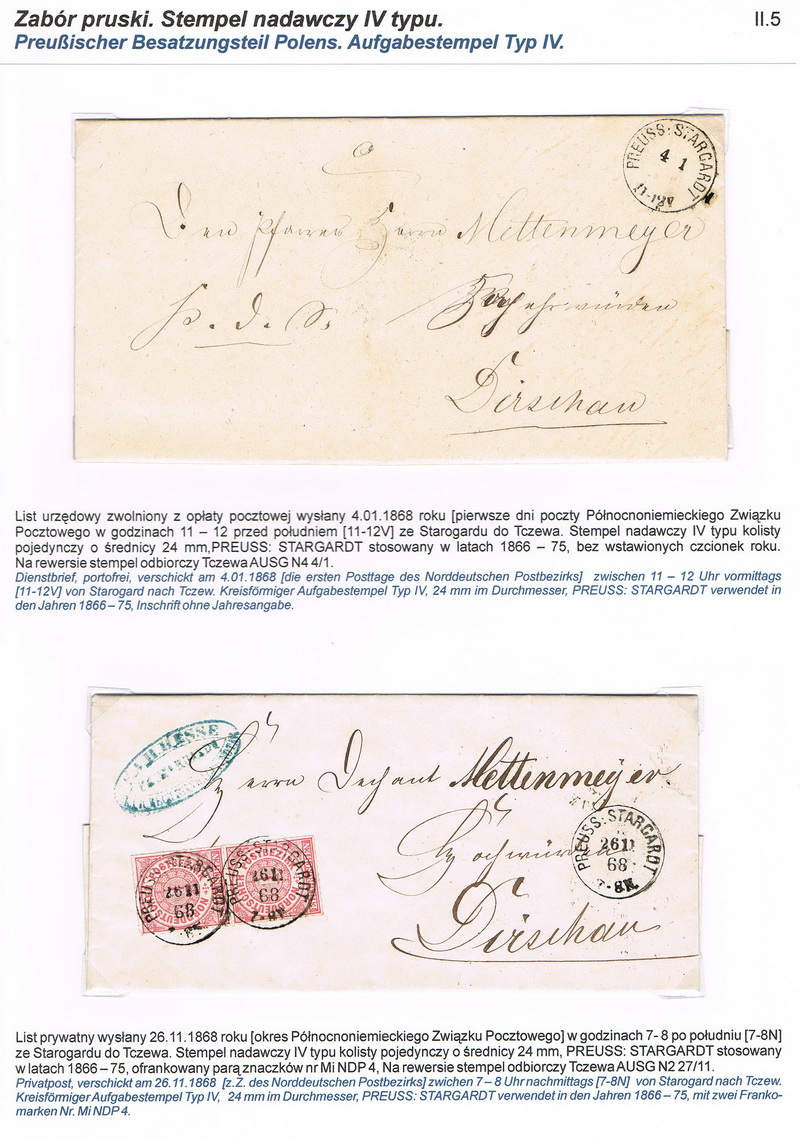 Zabór pruski. Stempel nadawczy IV typu.
II.5
Preußischer Besatzungsteil Polens. Aufgabestempel Typ IV.
PREUSS: STARGARDT
4 1
11-12V
Den Pfarrer Herrn Mettenmeyer
H. d. S.
Hochehrwürden
Dirschau
List urzędowy zwolniony z opłaty pocztowej wysłany 4.01.1868 roku [pierwsze dni poczty Północnoniemieckiego Związku
Pocztowego w godzinach 11 – 12 przed południem [11-12V] ze Starogardu do Tczewa. Stempel nadawczy IV typu kolisty
pojedynczy o średnicy 24 mm,PREUSS: STARGARDT stosowany w latach 1866 – 75, bez wstawionych czcionek roku.
Na rewersie stempel odbiorczy Tczewa AUSG N4 4/1.
Dienstbrief, portofrei, verschickt am 4.01.1868 [die ersten Posttage des Norddeutschen Postbezirks] zwischen 11 – 12 Uhr vormittags
[11-12V] von Starogard nach Tczew. Kreisförmiger Aufgabestempel Typ IV, 24 mm im Durchmesser, PREUSS: STARGARDT verwendet in
den Jahren 1866 – 75, Inschrift ohne Jahresangabe.
HESSE
Herrn Dechant Mettenmeyer
Hochwürden
Dirschau
PREUSS: STARGARDT
26 11
68
7-8N.
PREUSS: STARGARDT
26 11
68
PREUSS: STARGARDT
26 11
68
7-8N
NORDDEUTSCHER POSTBEZIRK
List prywatny wysłany 26.11.1868 roku [okres Północnoniemieckiego Związku Pocztowego] w godzinach 7- 8 po południu [7-8N]
ze Starogardu do Tczewa. Stempel nadawczy IV typu kolisty pojedynczy o średnicy 24 mm, PREUSS: STARGARDT stosowany
w latach 1866 – 75, ofrankowany parą znaczków nr Mi NDP 4, Na rewersie stempel odbiorczy Tczewa AUSG N2 27/11.
Privatpost, verschickt am 26.11.1868 [z.Z. des Norddeutschen Postbezirks] zwichen 7 – 8 Uhr nachmittags [7-8N] von Starogard nach Tczew.
Kreisförmiger Aufgabestempel Typ IV, 24 mm im Durchmesser, PREUSS: STARGARDT verwendet in den Jahren 1866 – 75, mit zwei Franko-
marken Nr. Mi NDP 4.